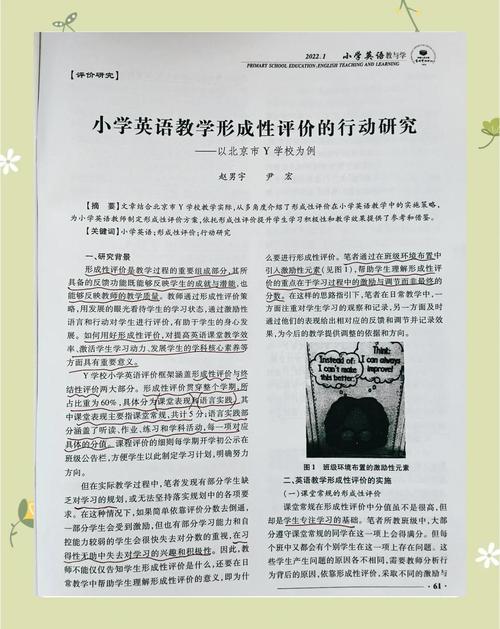 2022.1 小学英语教与学
PRIMARY SCHOOL EDUCATION, ENGLISH TEACHING AND LEARNING
【评价研究】
小学英语教学形成性评价的行动研究
——以北京市Y学校为例
赵男宇 尹 宏
【摘 要】文章结合北京市Y学校教学实际，从多角度介绍了形成性评价在小学英语教学中的实施策略，
为小学英语教师制定形成性评价方案、依托形成性评价提升学生学习积极性和教学效果提供了参考和借鉴。
【关键词】小学英语；形成性评价；行动研究
一、研究背景
形成性评价是教学过程的重要组成部分，其所
具备的反馈功能既能够反映学生的成就与潜能，也
能够反映教师的教学质量。教师通过形成性评价策
略，用发展的眼光看待学生的学习状态，通过激励性
语言和行动对学生进行评价，有助于学生的身心发
展。如何用好形成性评价，对提高英语课堂教学效
率、激活学生学习动力、发展学生的学科核心素养等
方面具有重要意义。
Y学校小学英语评价框架涵盖形成性评价与终
结性评价两大部分。形成性评价贯穿整个学期，所
占比重为60%，具体分为课堂表现和语言实践。其
中课堂表现主要指课堂常规，共计5分；语言实践部
分涵盖了听读、作业、练习和学科活动，每一项对应
具体的分值。课程评价的细则每学期开学初公示在
班级公告栏，方便学生以此制定学习计划，明确努力
方向。
但在实际教学过程中，笔者发现有部分学生缺
乏对学习的规划，或无法坚持落实规划中的各项要
求。在这种情况下，如果简单依靠评价分数去倒通，
一部分学生会受到激励，但也有部分学习能力和自
控能力较弱的学生会很快失去对分数的重视，在习
得性无助中失去对学习的兴趣和积极性。因此，教
师不能仅仅告知学生形成性评价是什么，还要在日
常教学中帮助学生理解形成性评价的意义，即为什
么要进行形成性评价。笔者通过在班级环境布置中
引入激励性元素（见图1），帮助学生理解形成性评
价的重点在于学习过程中的激励与调节而非最终的
分数。在这样的思路指引下，笔者在日常教学中，一
方面注重对学生学习的观察和记录，另一方面及时
通过他们的表现给出相对应的反馈和调节并记录效
果，为今后的教学提供调整的依据和方向。
Instead of:
I can't
make this
better.
Think:
I can always
improve!
图1 班级环境布置的激励性元素
二、英语教学形成性评价的实施
（一）课堂常规的形成性评价
课堂常规在形成性评价中分值虽不是很高，但
却是学生专注学习的基础。笔者所教班级中，大部
分遵守课堂常规的同学在这一项上会得满分。但每
个班中又都会有个别学生在这一项上存在问题。这
些学生产生问题的原因各不相同，需要教师分析行
为背后的原因，依靠形成性评价，采取不同的激励与
· 61 ·